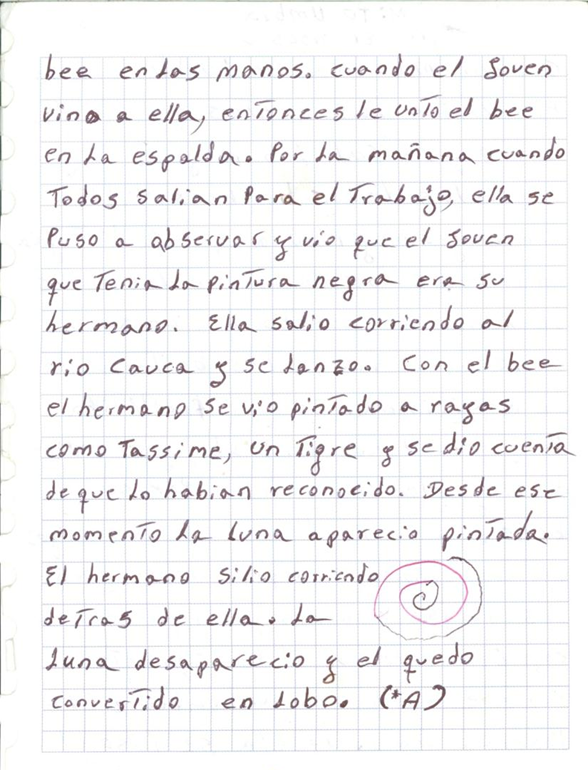 bee en las manos. cuando el Joven
vino a ella, entonces le unto el bee
en la espalda. Por la mañana cuando
Todos salian Para el Trabajo, ella se
Puso a observar y vio que el Joven
que Tenia la pintura negra era su
hermano. Ella salio corriendo al
rio Cauca y se lanzo. Con el bee
el hermano se vio pintado a rayas
como Tassime, un Tigre y se dio cuenta
de que lo habian reconocido. Desde ese
momento la luna aparecio pintada.
El hermano Silio corriendo
detras de ella. La
Luna desaparecio y el quedo
convertido en Lobo. (*A)